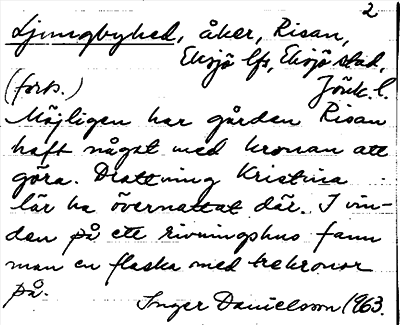 2
Ljungbyhed, åker, Risan,
Eksjö lfs, Eksjö stad,
(forts.) Jönk. l.
Möjligen har gården Risan
haft något med kronan att
göra. Drottning Kristina
lär ha övernattat där. I vin-
den på ett rivningshus fann
man en flaska med trekronor
på.
Inger Danielsson 1963.